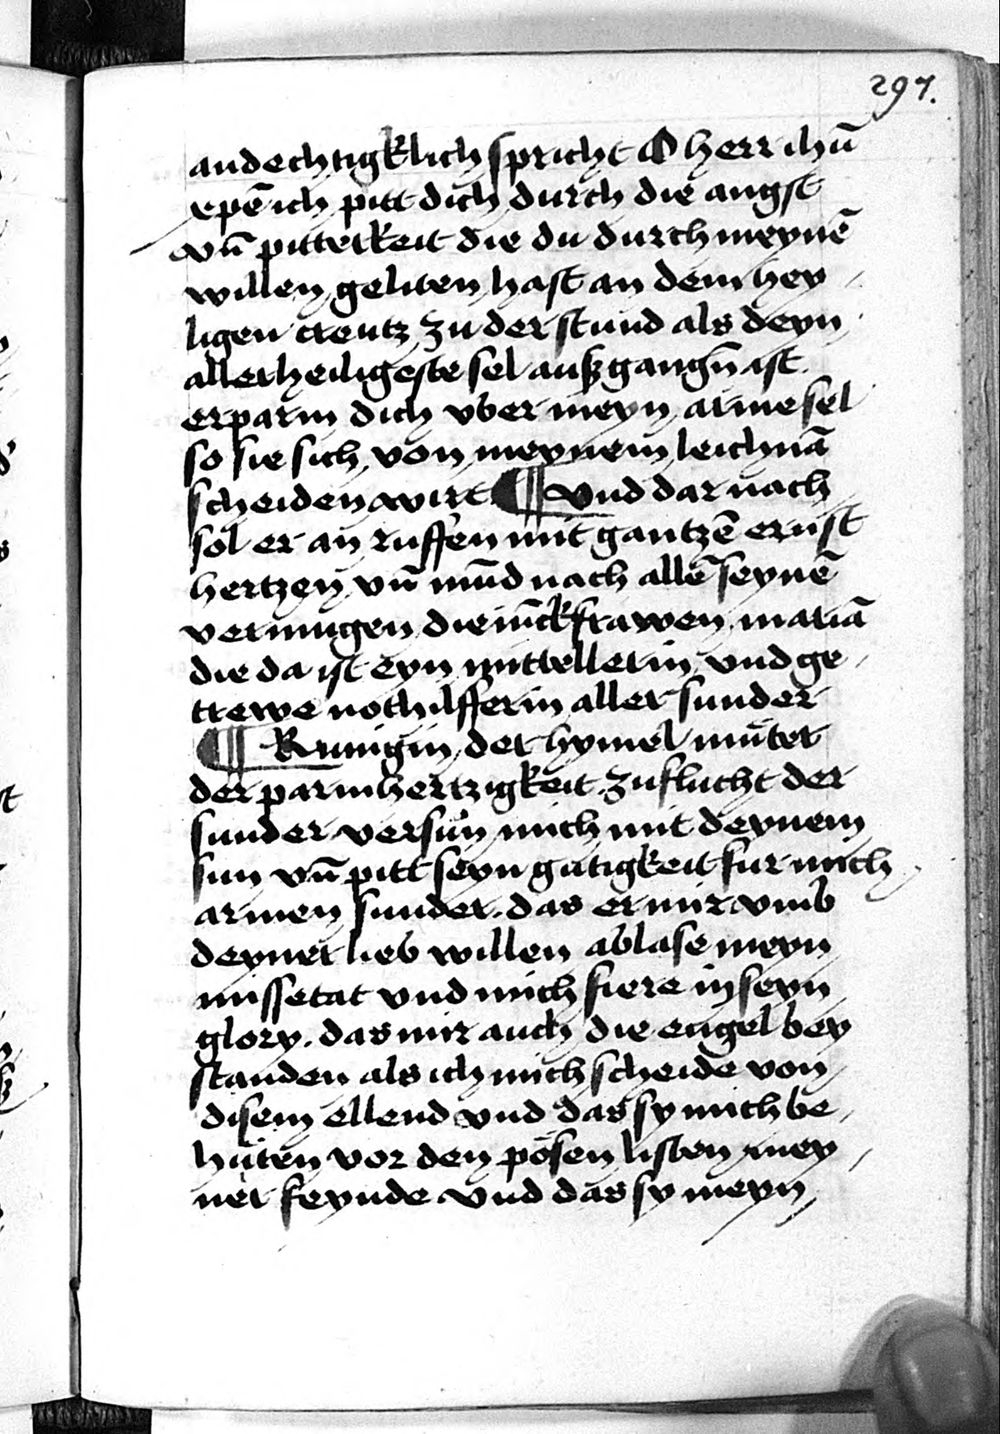 297.
andechtigklich spricht O herr ihū
xpē ich pitt dich durch die angst
vn̄ pitterkeit die du durch meynē
willen geliten hast an dem hey
ligen creutz zu der stund als deyn
allerheiligeste sel außgangn̄ ist.
erparm dich vber meyn arme sel
so sie sich von meynem leichnā
scheiden wirt ¶ vnd dar nach
sol er an ruffen mit gantzē ernst
hertzen vn̄ mūd nach allē seynē
vermugen die iūckfrawen mariā
die da ist eyn mittellerin vnd ge
trewe nothilfferin aller sunder
¶ Kunigin der hymel můter
der parmhertzigkeit zuflucht der
sunder versůn mich mit deynem
sun vn̄ pitt seyn gůtigkeit fur mich
armen sunder. das er mir vmb
deyner lieb willen ablase meyn
missetat vnd mich fiere in seyn
glory. das mir auch die engel bey
standen als ich mich scheide von
disem ellend vnd das sy mich be
hüten vor den pösen listen mey
ner feynde vnd das sy meyn